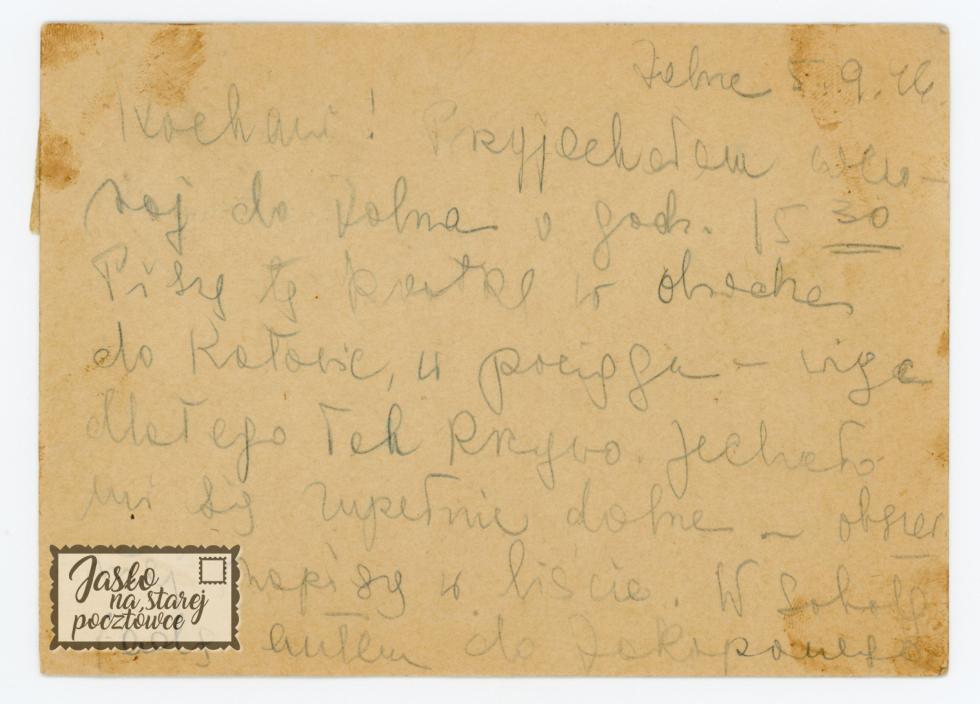 5.9.46.
Kochani! Przyjechałem wczo-
raj do Kolna o godz. 15 30
Piszę tę kartkę w
do Katowic, w pociągu – więc
dlatego tak krzywo. Jechało
mi się zupełnie dobrze – obszer
napiszę w liście. W sobotę
autem do Zakopanego
Jaśko
na starej
pocztówce